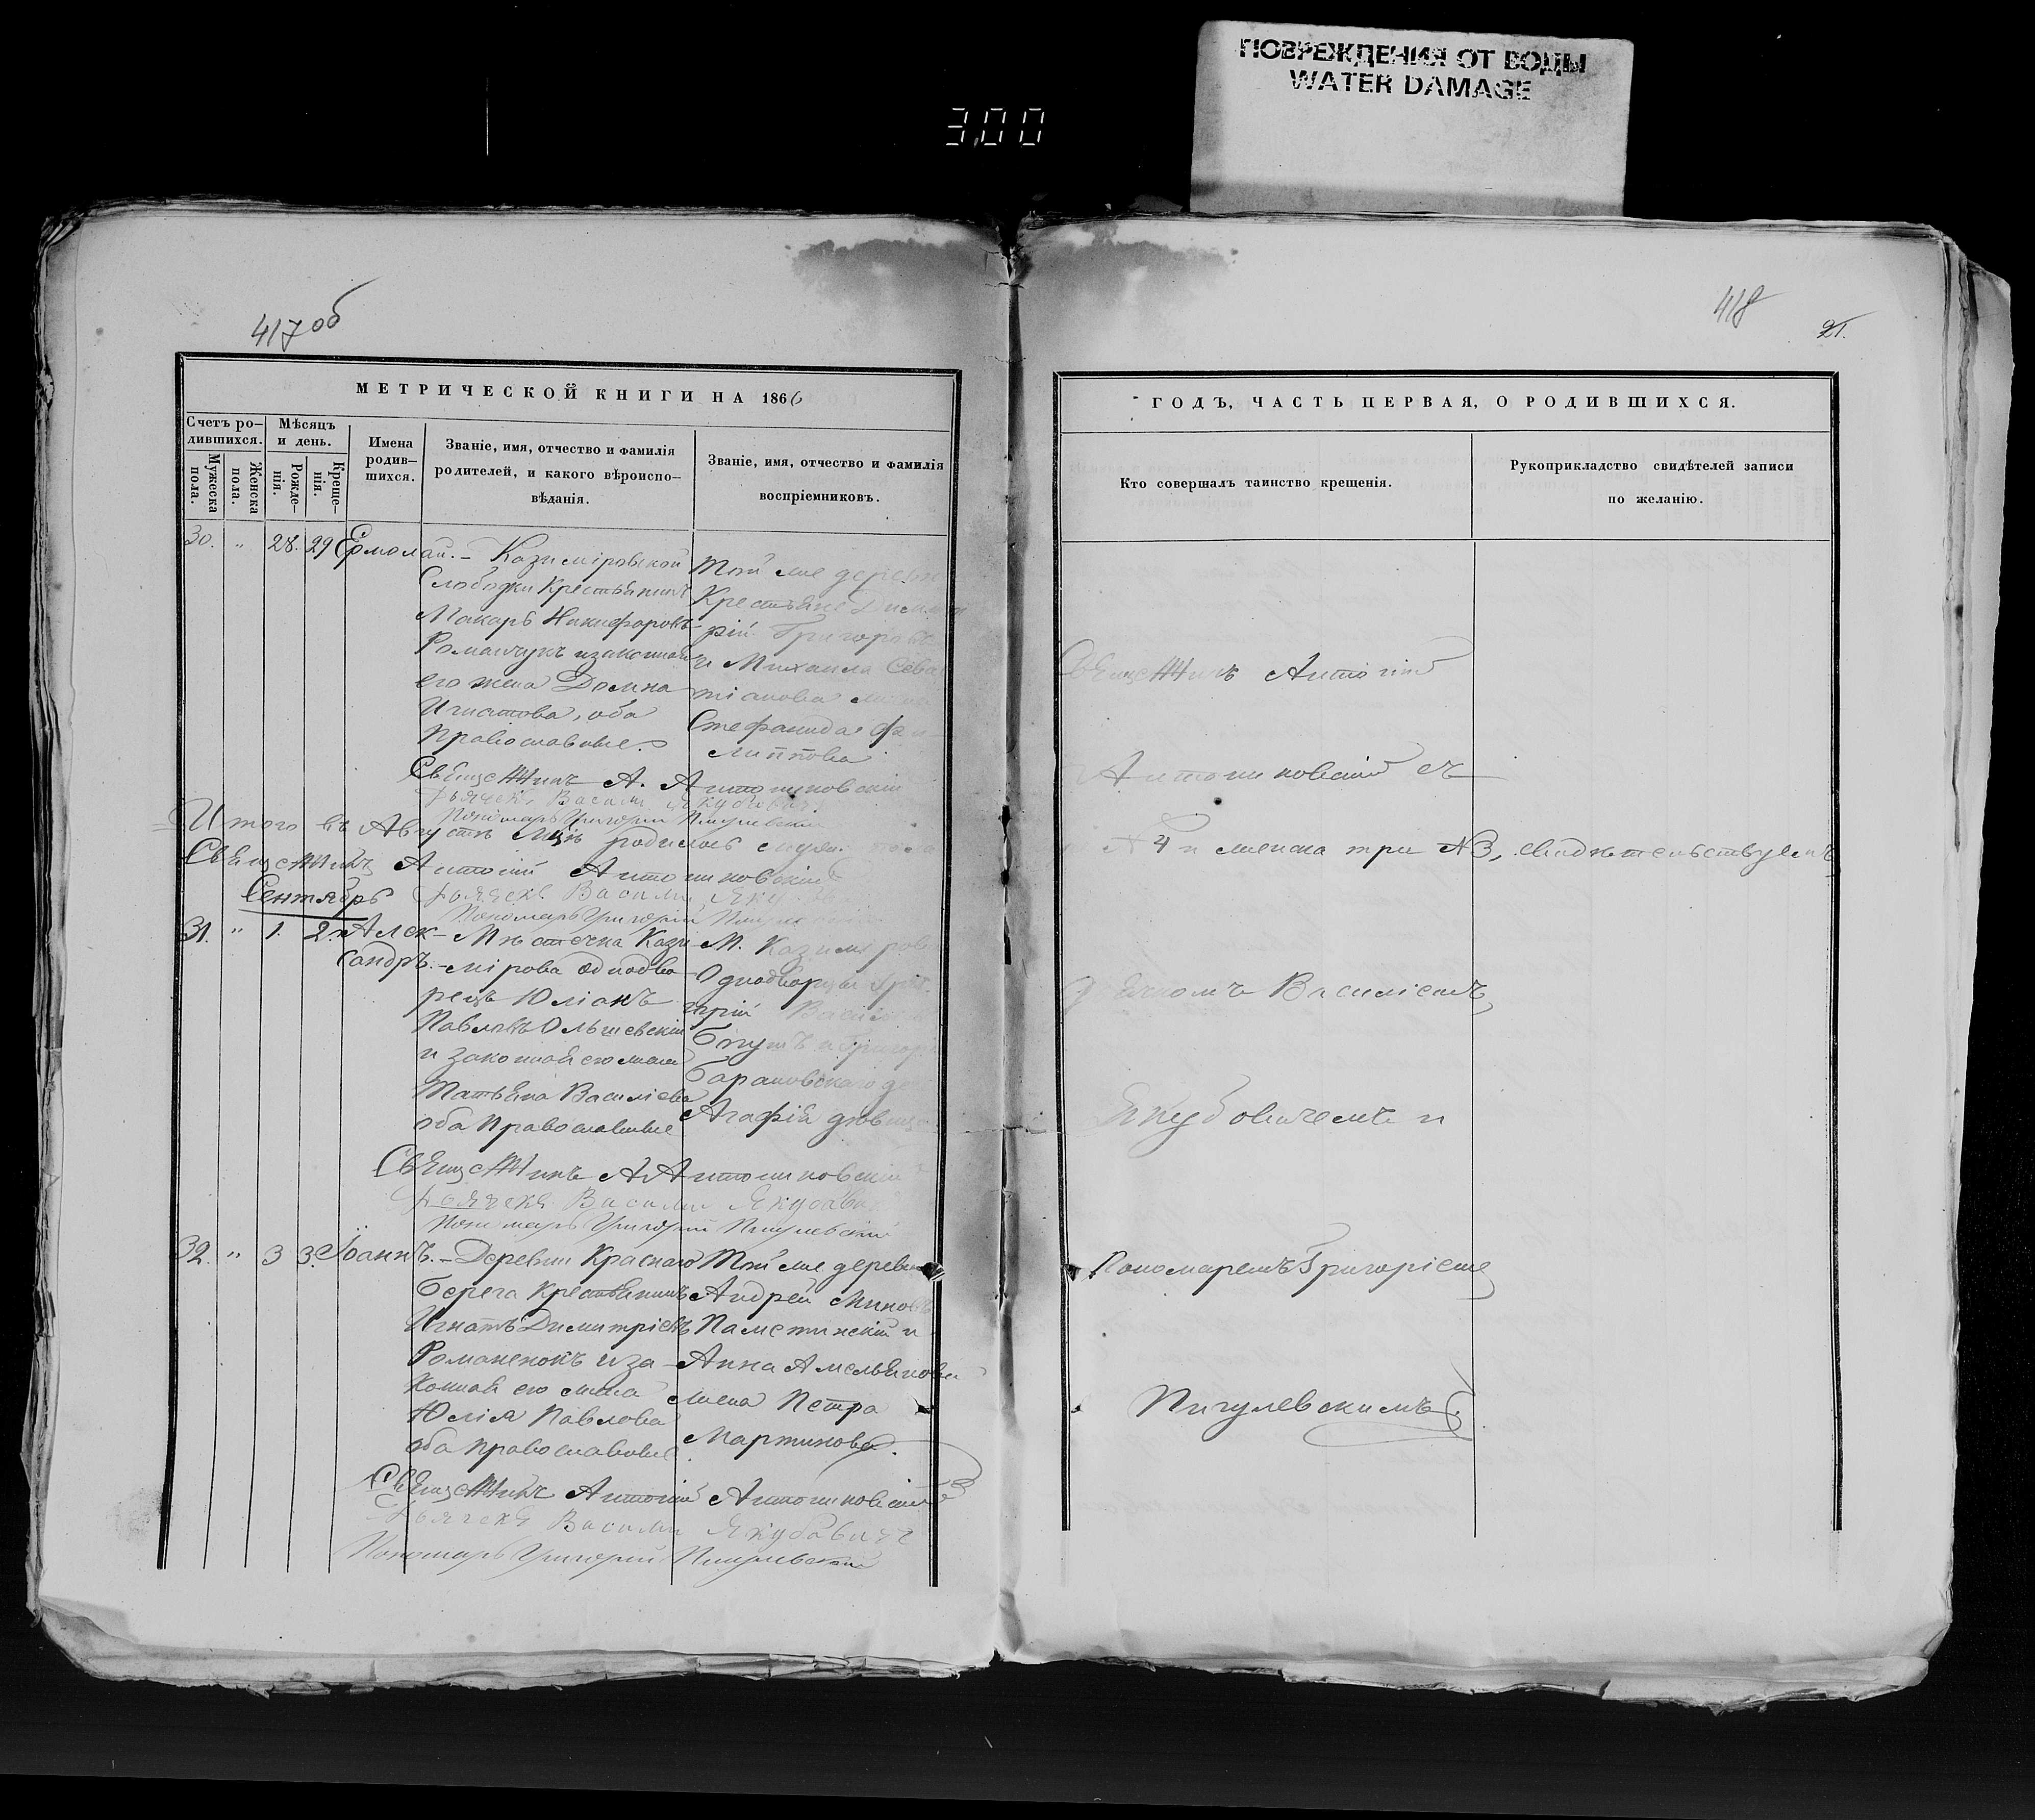 ПОВРЕЖДЕНИЯ ОТ ВОДЫ
WATER DAMAGE
3,00
417 об
МЕТРИЧЕСКОЙ КНИГИ НА 1866
Счетъ ро-
дившихся.
Мѣсяцъ
и день.
Мужеска
пола.
Женска
пола.
Рожде-
нія.
Креще-
нія.
Имена
родив-
шихся.
Званіе, имя, отчество и фамилія
родителей, и какого вѣроиспо-
вѣданія.
Званіе, имя, отчество и фамилія
воспріемниковъ.
30. " 28. 29 Ермолай. – Казиміровской
Слободки Крестьянинъ
Макаръ Никифоровъ
Романчукъ и законная
его жена Домна
Игнатова, оба
Православные.
Той же деревни
Крестьяне Дими
рій Григорьевъ
и Михаила Сева
тіанова жена
Стефанида Фи
липпова
Священникъ А. Антониковскій
Дьячекъ Василий Якубовичъ
Пономарь Григорій Пигулевскій
Итого въ Августѣ М-цѣ родилось муж. пола
Священникъ Антоній Антониковскій
Сентябрь Дьячекъ Василий Яку
Пономарь Григорій
31. " 1. 2. Алек-
сандръ.
Мѣстечка Кази-
мірова Однодво-
рецъ Юліанъ
Павловъ Ольшевскій
и законная его жена
Татьяна Василіева
оба Православные
М. Казимірова
Однодворцы
трій
Барановскаго
Агафія дѣвица
Священникъ А Антониковскій
Дьячекъ Василий Якубови
Пономарь Григорий Пигулевскій
32. " 3 3. Іоаннъ. – Деревни Краснаго
Берега Крестьянинъ
Игнатъ Димитріевъ
Романенокъ и за-
конная его жена
Юлія Павлова
оба православные.
Той же деревни
Андрей Миновъ
и
Анна Амельянова
жена Петра
Мартинова.
Священникъ Антоній Антониковскій
Дьячекъ Василий Якубавичъ
Пономарь Григорий Пигулевский
418
21.
ГОДЪ, ЧАСТЬ ПЕРВАЯ, О РОДИВШИХСЯ.
Кто совершалъ таинство крещенія.
Рукоприкладство свидѣтелей записи
по желанію.
Священникъ Антоній
Антониковскій съ
№ 4 и женска три № 3, свидѣтельствуемъ
Дьячкомъ Василіемъ
Якубовичемъ и
Пономаремъ Григоріемъ
Пигулевскимъ.